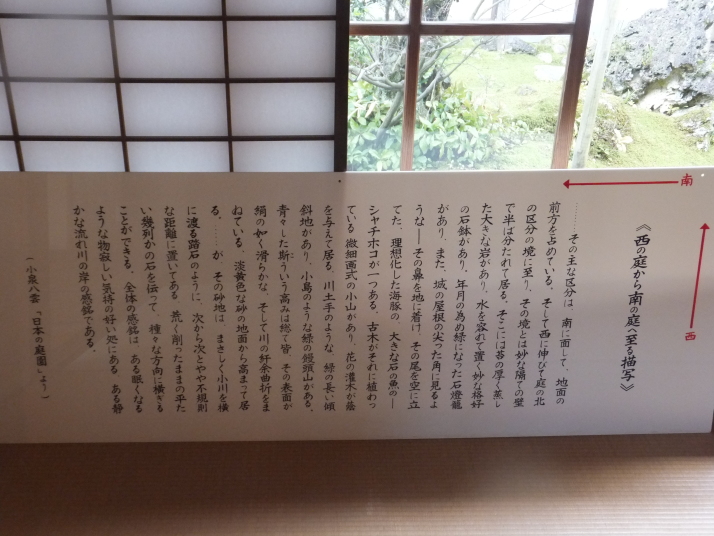 南
西
《西の庭から南の庭へ至る描写》
……その主な区分は、南に面して、地面の
前方を占めている。そして西に伸びて庭の北
の区分の境に至り、その境とは妙な隔ての壁
で半ば分たれて居る。そこには苔の厚く蒸し
た大きな岩があり、水を容れて置く妙な格好
の石鉢があり、年月の為め緑になった石燈籠
があり、また、城の屋根の尖った角に見るよ
うな──その鼻を地に着け、その尾を空に立
てた、理想化した海豚の、大きな石の魚の─
シャチホコが一つある。古木がそれに植わっ
ている微細画式の小山があり、花の灌木が蔭
を与えて居る、川土手のような、緑の長い傾
斜地があり、小島のような緑の饅頭山がある。
青々した斯ういう高みは総て皆、その表面が
絹の如く滑らかな、そして川の紆余曲折をま
ねている、淡黄色な砂の地面から高まって居
る。……が、その砂地は、まさしく小川を横
に渡る踏石のように、次から次とやや不規則
な距離に置いてある、荒く削ったままの平た
い幾列かの石を伝って、種々な方向に横ぎる
ことができる。全体の感銘は、ある眠くなる
ような物寂しい気持の好い処にある、ある静
かな流れ川の岸の感銘である。
(小泉八雲「日本の庭園」より)